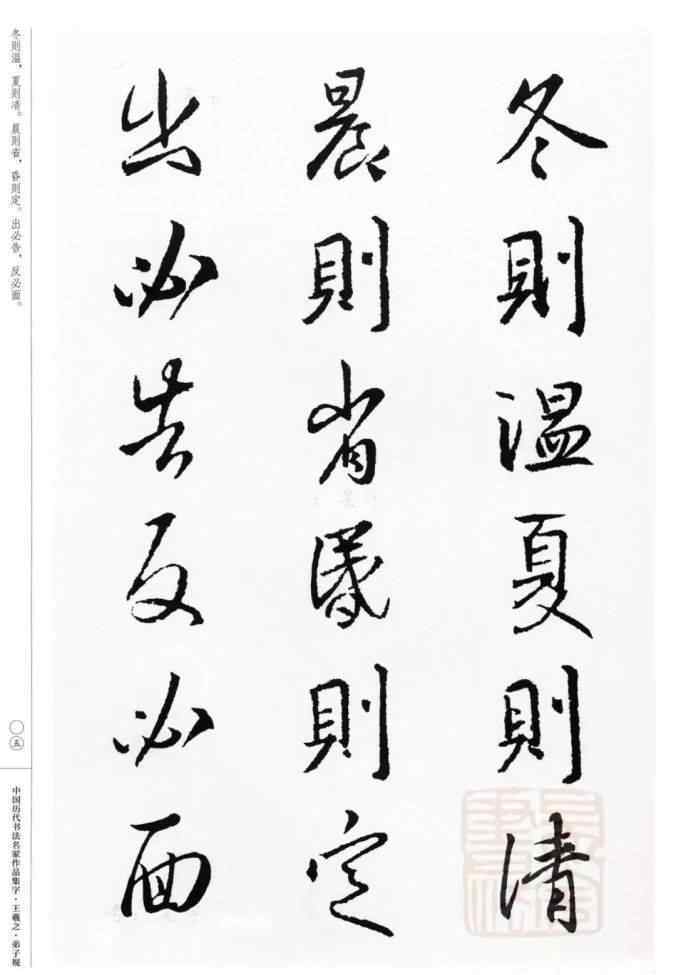 冬則温夏則清
晨則省昏則定
出必告反必面
冬則溫，夏則凊。晨則省，昏則定。出必告，反必面。
〇五
中国历代书法名家作品集字·王羲之·弟子规